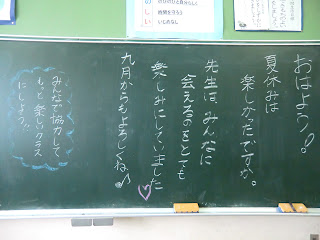 おはよう！
夏休みは
楽しかったですか。
先生は、みんなに
会えるのをとても
楽しみにしていました
九月からもよろしくね♪
みんなで協力して
もっと楽しいクラス
にしよう！！
時間を守ろう
いじめなし